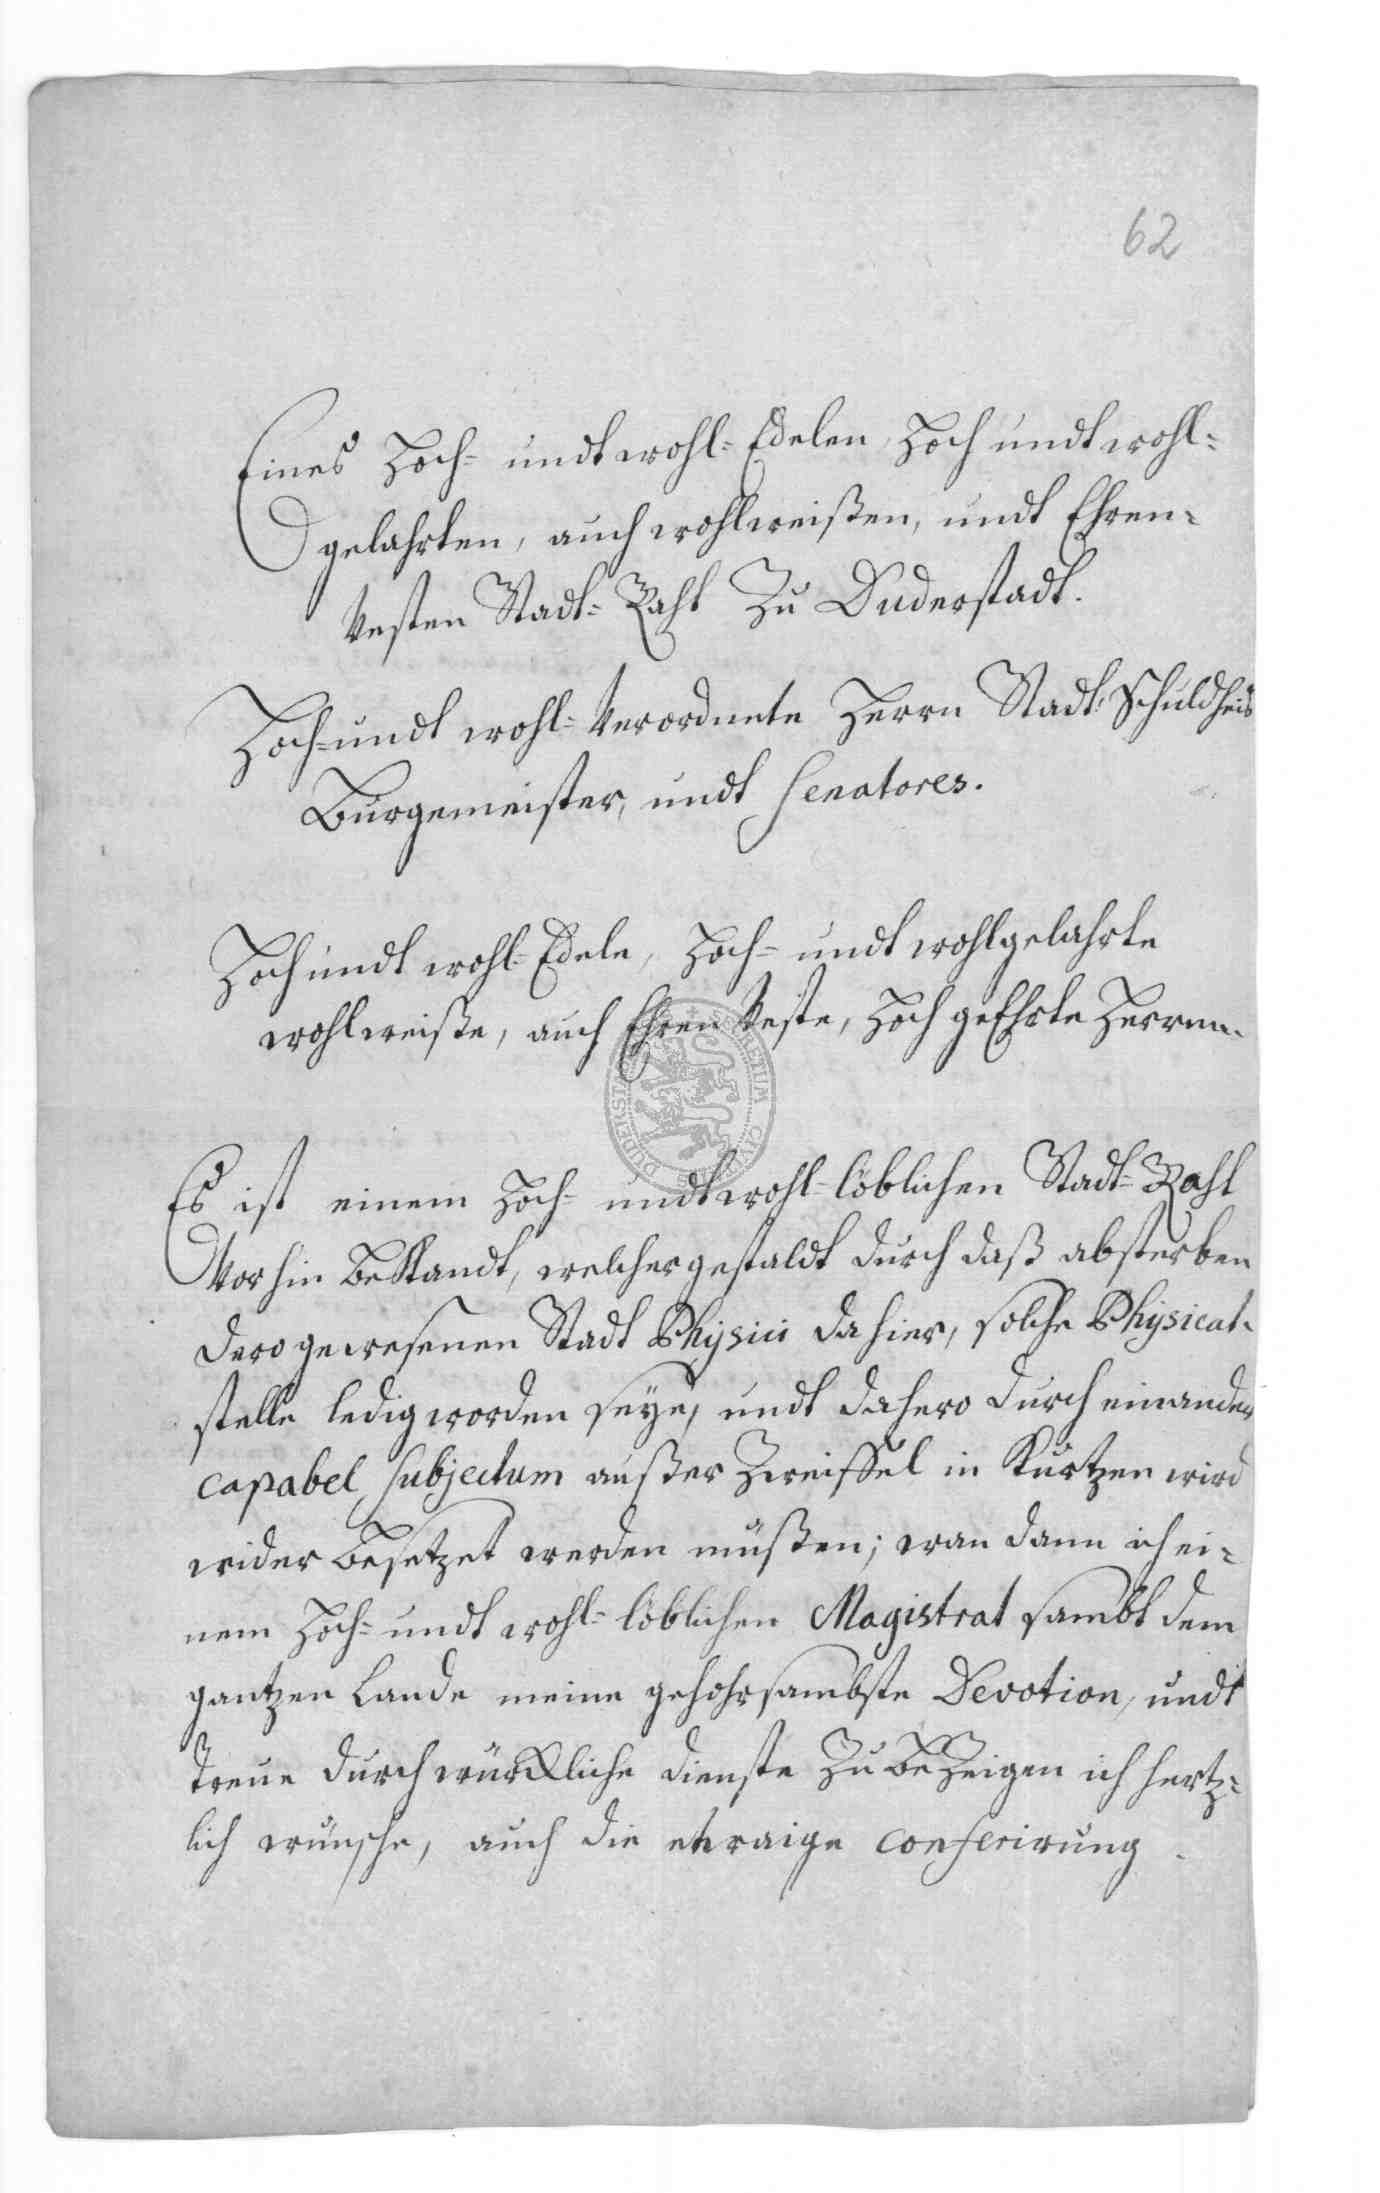 62
Eines Hoch- undt wohl-Edelen, Hoch undt wohl-
gelahrten, auch wohlweißen, undt Ehren-
Vesten Stadt-Raht Zu Duderstadt.
Hoch- undt wohl-Verordnete Herrn Stadt-Schuldheis
Burgemeister, undt Senatores.
Hoch undt wohl-Edele, Hoch- undt wohlgelahrte
wohlweiße, auch Ehren Veste, Hoch geEhrte Herrn.
Es ist einem Hoch- undt wohl-löblichen Stadt-Raht
Vorhin bekandt, welchergestaldt durch daß absterben
dero gewesenen Stadt Physici dahier, solche Physicat-
stelle ledig worden seye, undt dahero durch ein ander
capabel subjectum außer Zweiffel in Kurtzen wird
wider besetzet werden müßen; wan dann ich ei-
nem Hoch- undt wohl-löblichen Magistrat sambt dem
gantzen Lande meine gehohrsambste Devotion, undt
Treue durch würckliche dienste Zu beZeigen ich hertz-
lich wünsche, auch die etwaige conferirung